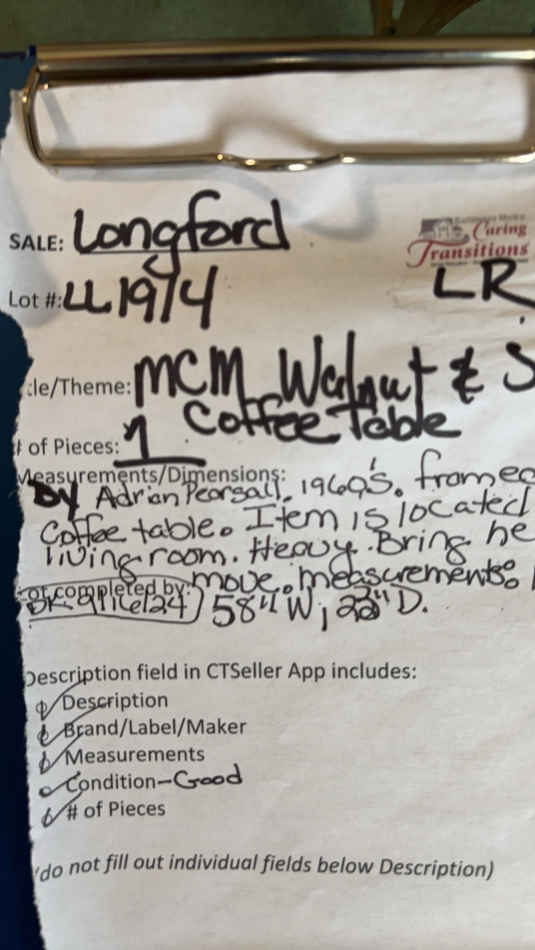 SALE: Longford
Caring
Transitions
Lot #: LL1974
LR
tle/Theme: MCM Walnut & S
Coffee Table
# of Pieces: 1
Measurements/Dimensions:
By Adrian Pearsall. 1960's. framed
coffee table. Item is located
living room. Heavy. Bring he
Lot completed by: move. measurements:
58" W, 22" D.
Description field in CTSeller App includes:
Description
Brand/Label/Maker
Measurements
Condition-Good
# of Pieces
(do not fill out individual fields below Description)